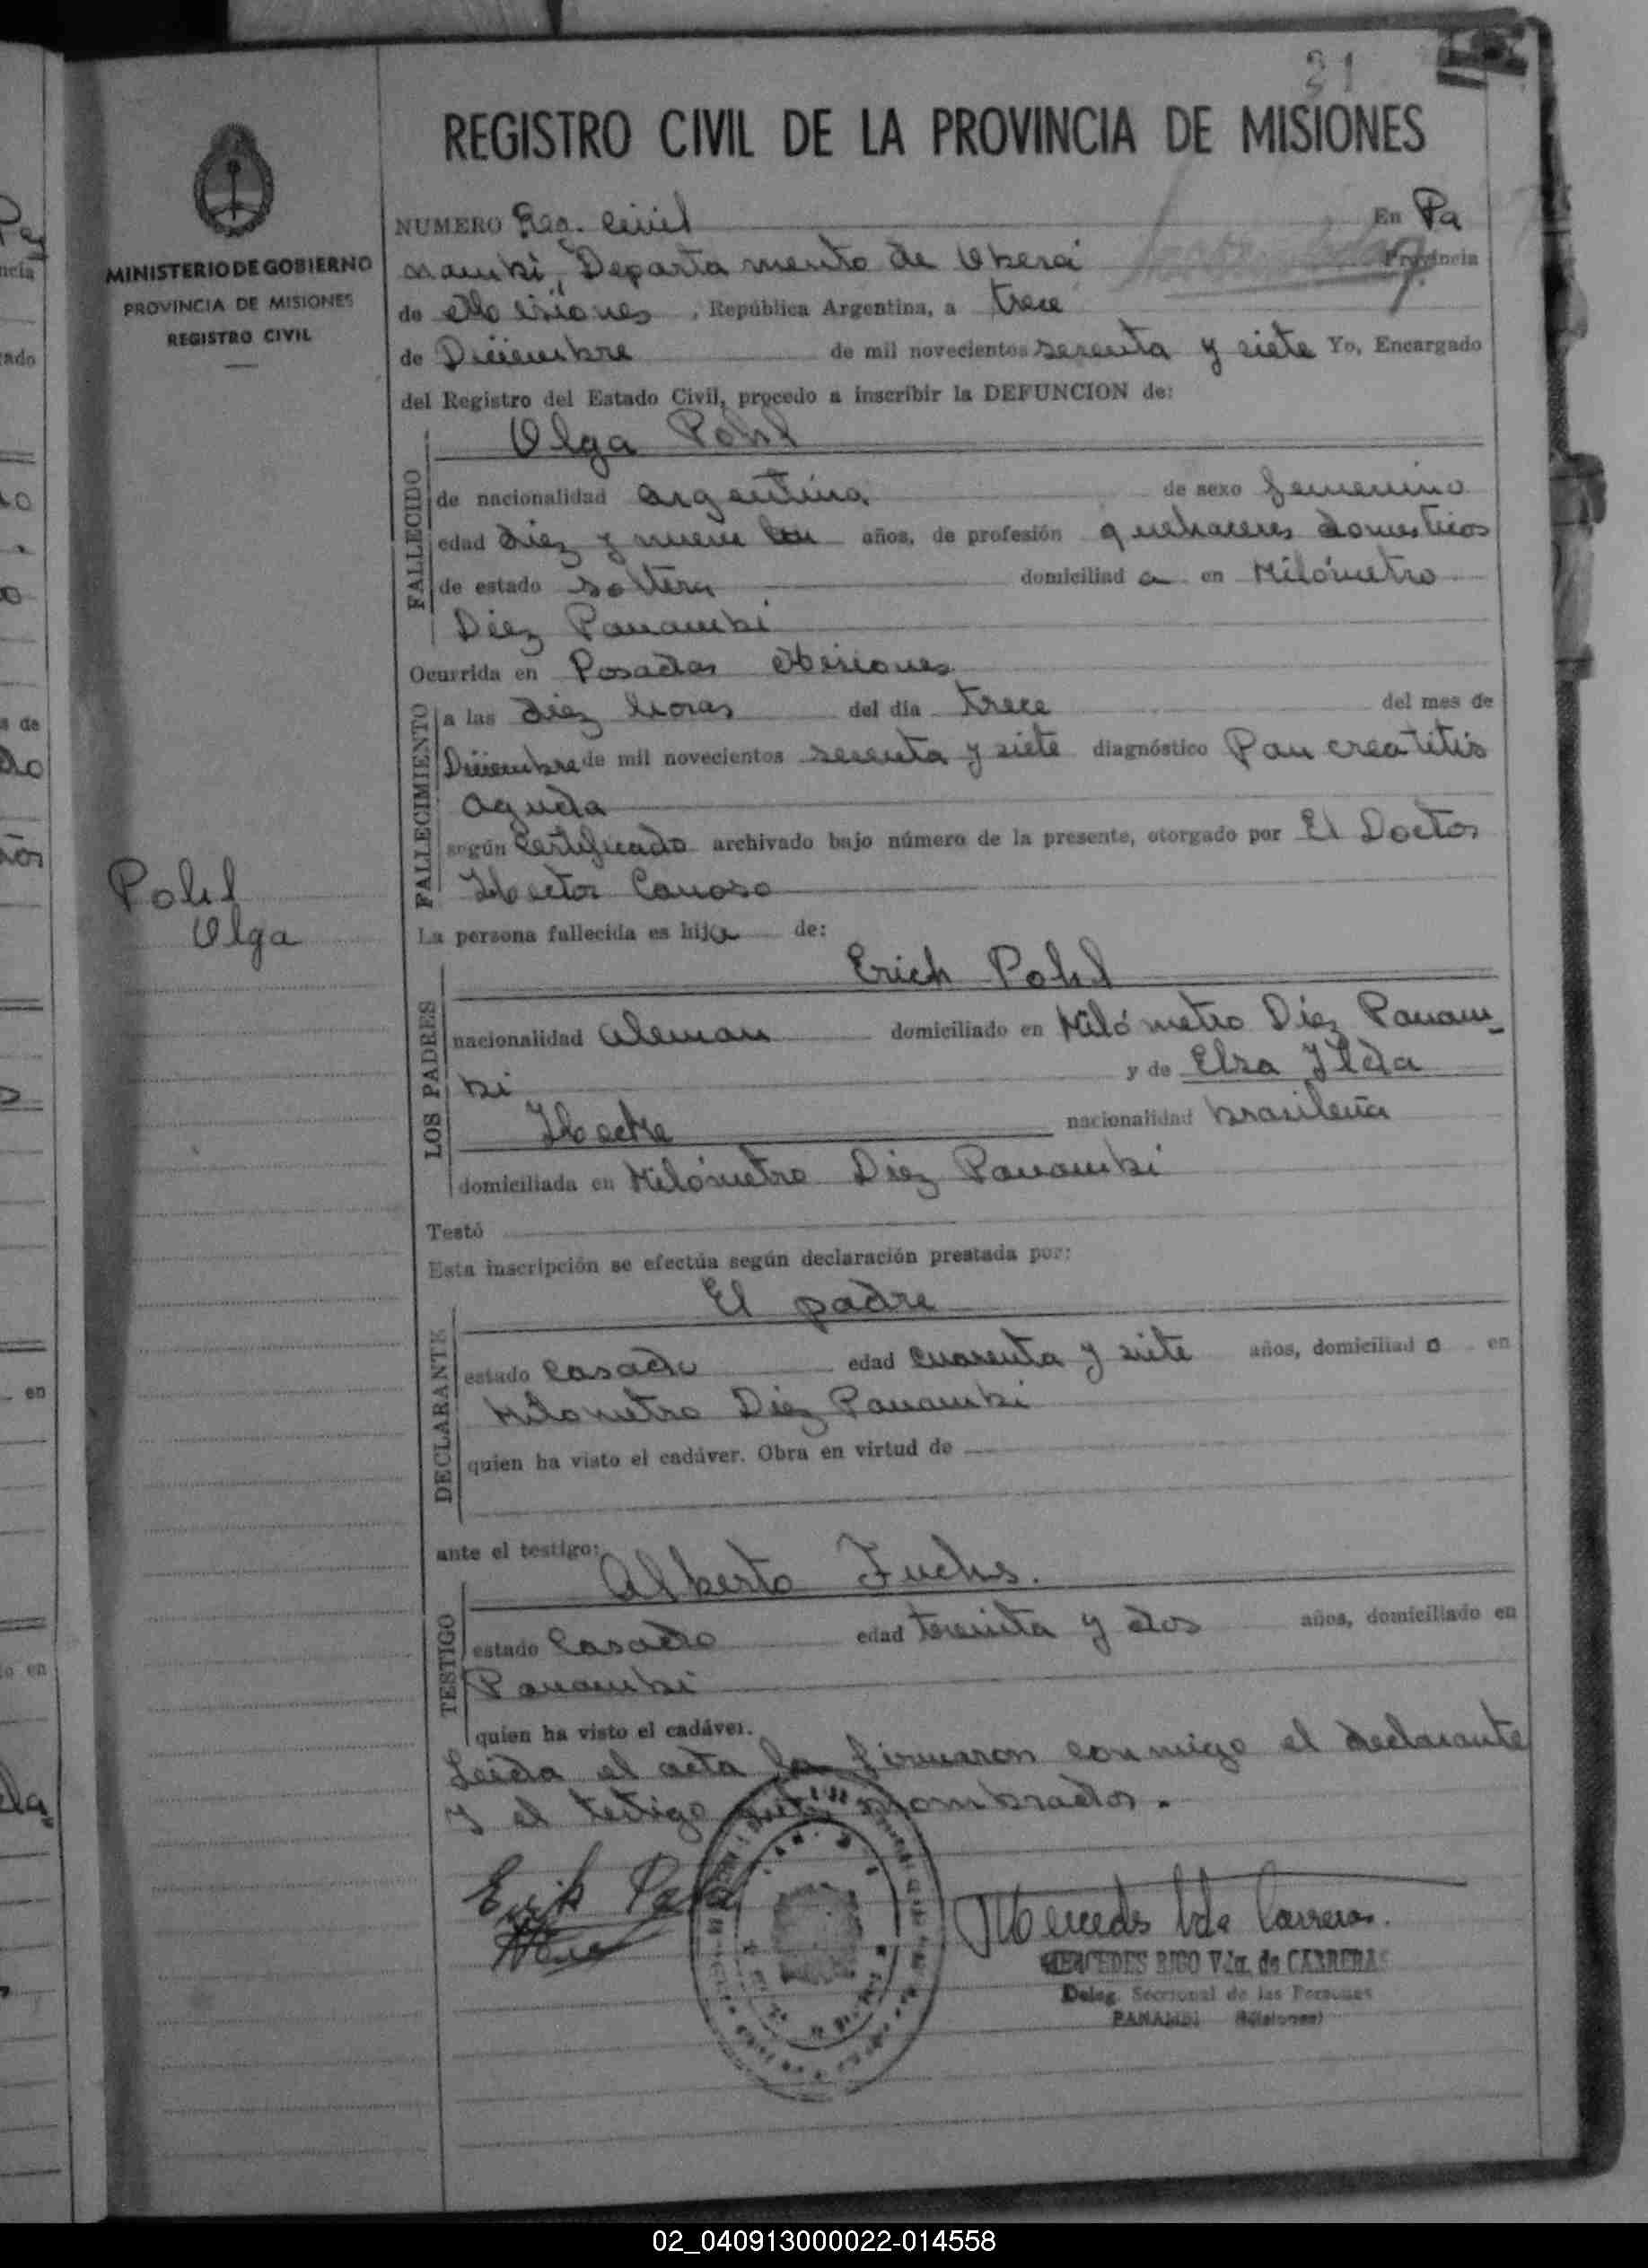 31
REGISTRO CIVIL DE LA PROVINCIA DE MISIONES
MINISTERIO DE GOBIERNO
PROVINCIA DE MISIONES
REGISTRO CIVIL
NUMERO Reg. Civil En Pa
nambi, Departamento de Oberá Provincia
de Misiones, República Argentina, a trece
de Diciembre de mil novecientos sesenta y siete Yo, Encargado
del Registro del Estado Civil, procedo a inscribir la DEFUNCION de:
Olga Pohl
FALLECIDO
de nacionalidad argentina de sexo femenino
edad diez y nueve años, de profesión quehaceres domesticos
de estado soltera domiciliad a en Kilómetro
Diez Panambi
Ocurrida en Posadas Misiones
FALLECIMIENTO
a las diez horas del día trece del mes de
Diciembre de mil novecientos sesenta y siete diagnóstico Pancreatitis
aguda
según Certificado archivado bajo número de la presente, otorgado por El Doctor
Hector Canoso
Pohl
Olga
La persona fallecida es hija de:
Erich Pohl
LOS PADRES
nacionalidad aleman domiciliado en Kilómetro Diez Panam-
bi y de Elsa Ilda
Hecke nacionalidad brasileña
domiciliada en Kilómetro Diez Panambi
Testó
Esta inscripción se efectúa según declaración prestada por:
El padre
DECLARANTE
estado Casado edad cuarenta y siete años, domiciliad o en
Kilometro Diez Panambi
quien ha visto el cadáver. Obra en virtud de
ante el testigo:
Alberto Fuchs.
TESTIGO
estado Casado edad treinta y dos años, domiciliado en
Panambi
quien ha visto el cadáver.
Leida el acta la firmaron conmigo el declarante
y el testigo nombrados.
Erik Pohl
Mercedes Vda Carreras.
MERCEDES RIGO Vda. de CARRERAS
Deleg. Seccional de las Personas
PANAMBI (Misiones)
02_040913000022-014558